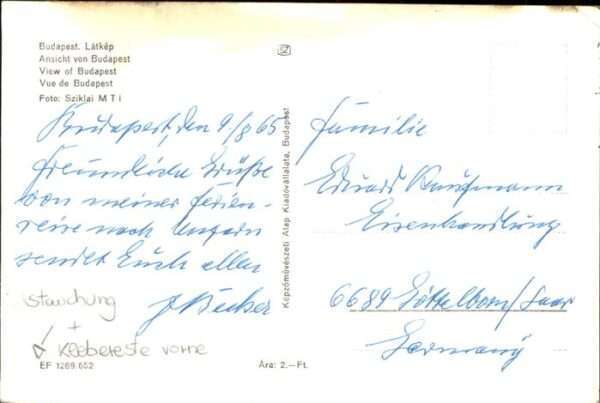 Budapest. Látkép
Ansicht von Budapest
View of Budapest
Vue de Budapest
Foto: Sziklai MTI
Budapest, den 9/8 65
Freundliche Grüße
von meiner Ferien-
reise nach Ungarn
sendet Euch allen
J Becker
Stauchung
+
Klebereste vorne
EF 1269.652
Ára: 2.–Ft.
Képzőművészeti Alap Kiadóvállalata, Budapest
Familie
Eduard Kaufmann
Eisenhandlung
6689 Göttelborn/Saar
Germany